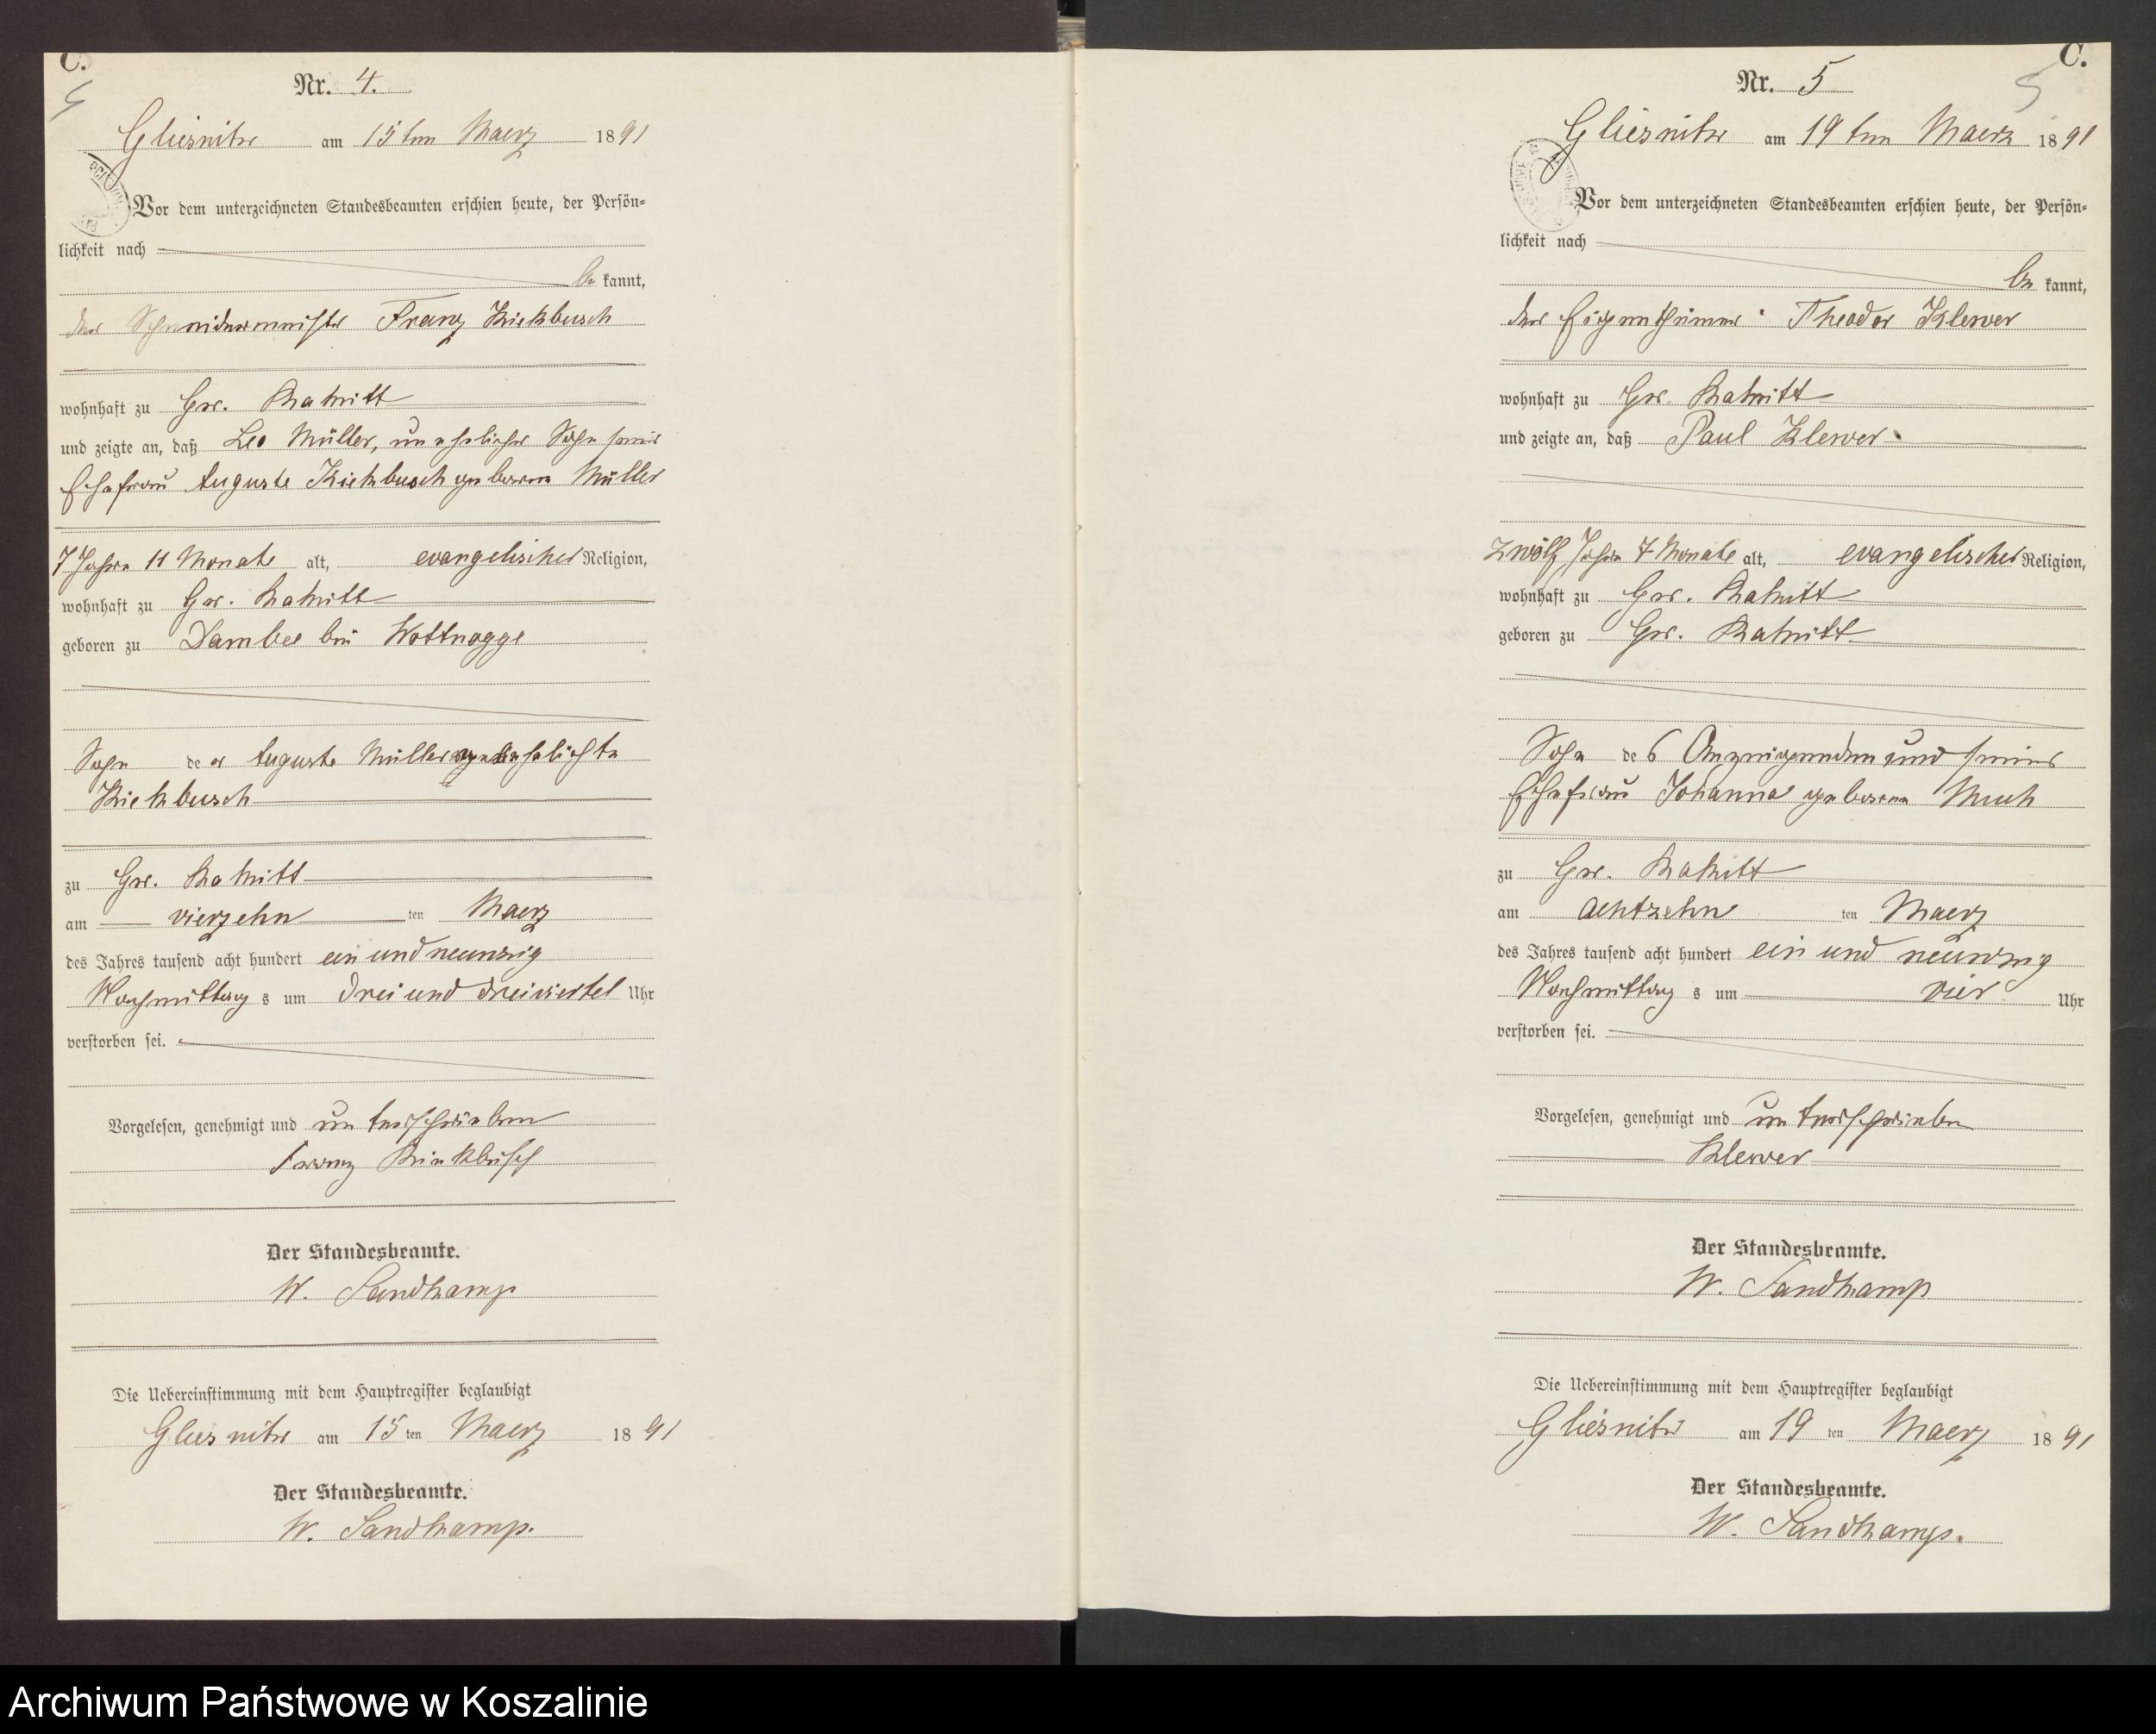 C.
Nr. 4.
Gliesnitz am 15ten Maerz 1891
Vor dem unterzeichneten Standesbeamten erschien heute, der Persön-
lichkeit nach
be kannt,
der Schneidermeister Franz Kiekbusch
wohnhaft zu Gr. Rakitt
und zeigte an, daß Leo Müller, unehelicher Sohn seiner
Ehefrau Auguste Kiekbusch geborene Müller
7 Jahre 11 Monate alt, evangelischer Religion,
wohnhaft zu Gr. Rakitt
geboren zu Dambee bei Wottnogge
Sohn der Auguste Müller verehelichte
Kiekbusch
zu Gr. Rakitt
am vierzehn ten Maerz
des Jahres tausend acht hundert ein und neunzig
Nachmittag s um drei und dreiviertel Uhr
verstorben sei.
Vorgelesen, genehmigt und unterschrieben
Franz Kiekbusch
Der Standesbeamte.
W. Sandkamp
Die Uebereinstimmung mit dem Hauptregister beglaubigt
Gliesnitz am 15 ten Maerz 1891
Der Standesbeamte.
W. Sandkamp.
C.
Nr. 5
5
Gliesnitz am 19ten Maerz 1891
Vor dem unterzeichneten Standesbeamten erschien heute, der Persön-
lichkeit nach
be kannt,
der Eigenthümer Theodor Klewer
wohnhaft zu Gr. Rakitt
und zeigte an, daß Paul Klewer
zwölf Jahre 7 Monate alt, evangelischer Religion,
wohnhaft zu Gr. Rakitt
geboren zu Gr. Rakitt
Sohn des Anzeigenden und seiner
Ehefrau Johanna geborene Much
zu Gr. Rakitt
am achtzehn ten Maerz
des Jahres tausend acht hundert ein und neunzig
Nachmittag s um vier Uhr
verstorben sei.
Vorgelesen, genehmigt und unterschrieben
Klewer
Der Standesbeamte.
W. Sandkamp
Die Uebereinstimmung mit dem Hauptregister beglaubigt
Gliesnitz am 19 ten Maerz 1891
Der Standesbeamte.
W. Sandkamp.
Archiwum Państwowe w Koszalinie